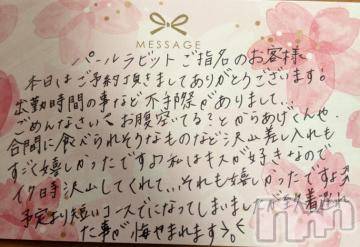 MESSAGE
パールラビット ご指名のお客様
本日はご予約頂きましてありがとうございます!
出勤時間の事など不手際がありまして、、
ごめんなさい お腹空いてる?とからあげくんや、
合間に食べられそうなものなど沢山差し入れも
すごく嬉しかったです♪私はキスが好きなので
イク時沢山してくれて、、それも嬉しかったですよ
予定より短いコースでになってしまいましたが
た事が悔やまれます